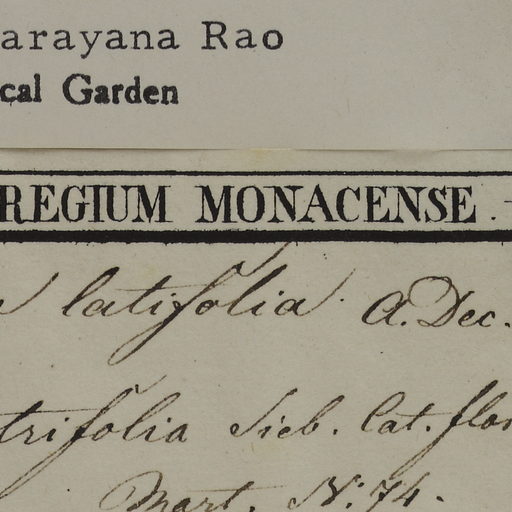 arayana Rao
cal Garden
REGIUM MONACENSE.
latifolia. A. Dec.
trifolia Sieb. Cat. flor
Mart. N. 74.